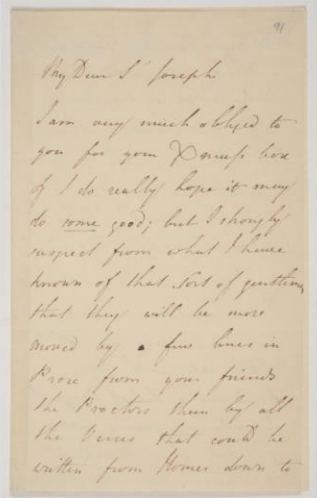 91
My Dear Sr Joseph
I am very much obliged to
you for your Xmass box
& I do really hope it may
do some good; but I strongly
suspect from what I have
known of that sort of gentlemen
that they will be more
moved by a few lines in
Prose from your friends
the Proctors than by all
the Verses that could be
written from Homer down to